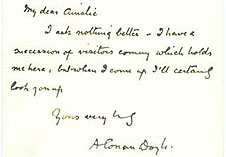 My dear Ainslie
I ask nothing better - I have a
succession of visitors coming which holds
me here, but when I come up I'll certainly
look you up.
Yours very truly
A Conan Doyle.